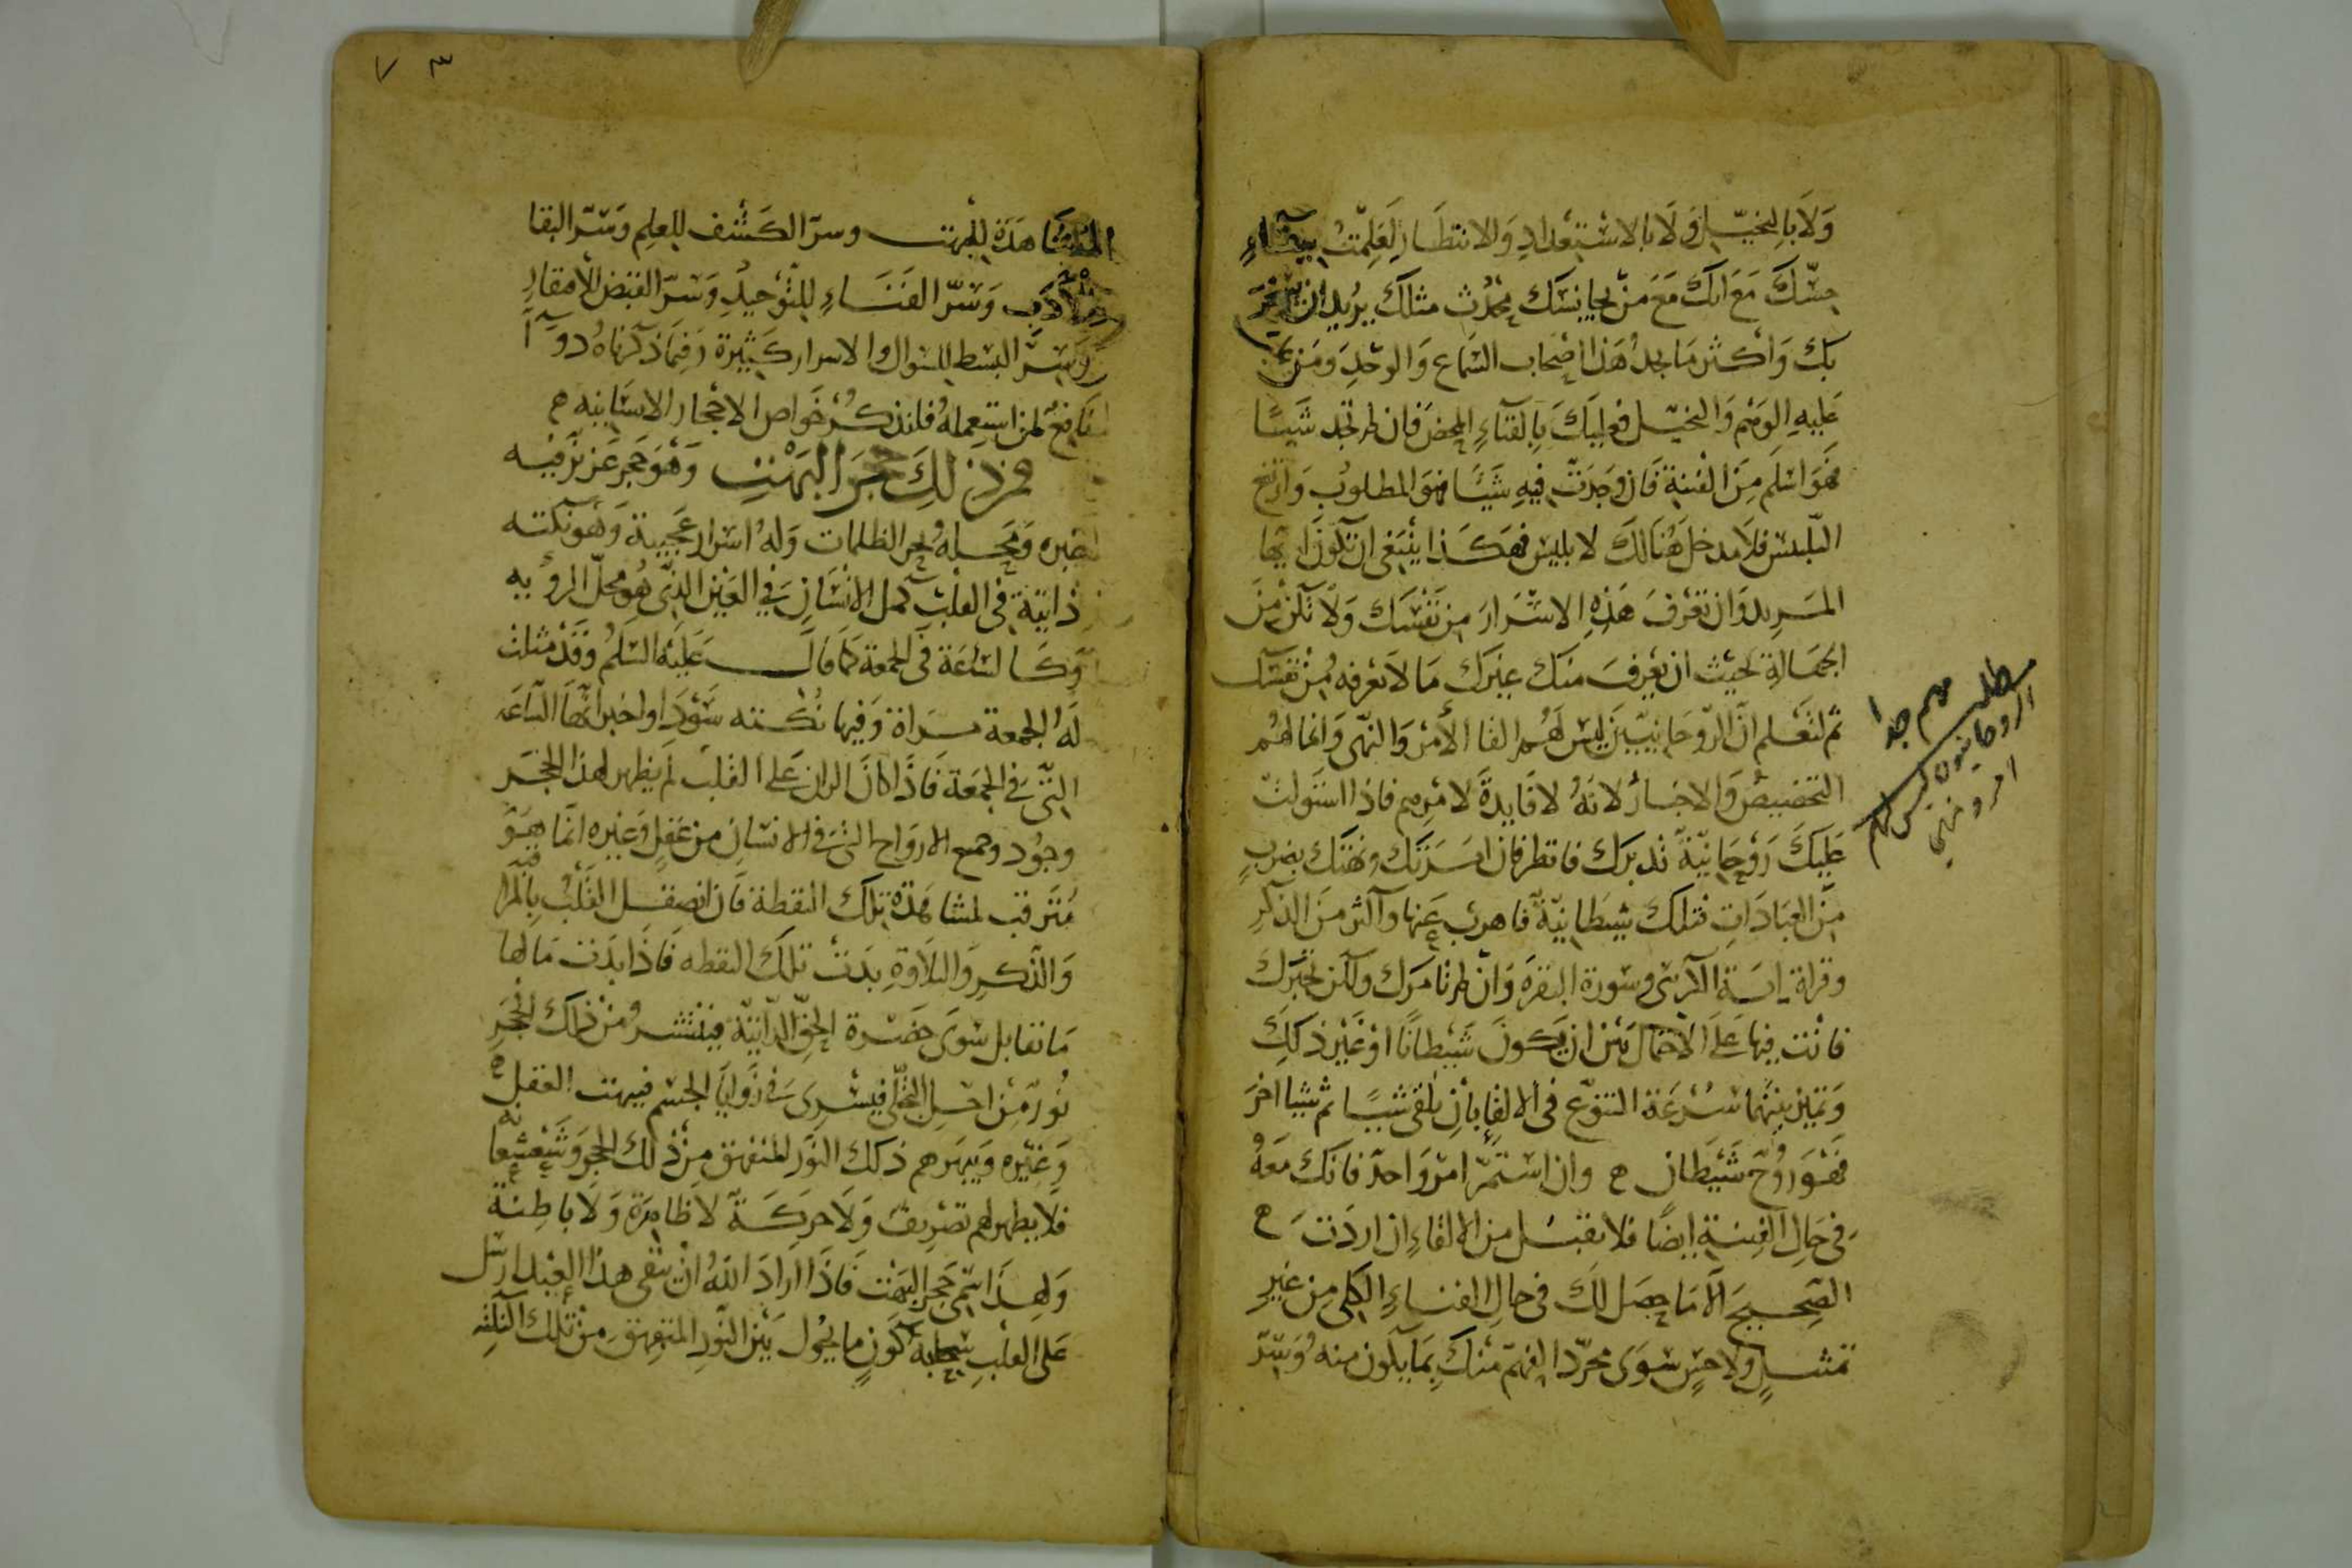 ولا بالتخيل ولا بالاستعداد والانتظار لعلمت ببقاء
حسك مع انك مع من يجانسك محدث مثلك يريد ان يسخر
بك واكثر ما يجد هذا اصحاب السماع والوجد ومن
عليه الوهم والتخيل فعليك بالفناء المحض فان لم تجد شيئا
فهو اسلم من الفتنة فان وجدت فيه شيئا فهو المطلوب وارتفع
التلبيس فلا مدخل هنالك لابليس فهكذا ينبغى ان تكون ايها
المريد وان تعرف هذه الاسرار من نفسك ولا تكن من
الجهالة بحيث ان يعرف منك غيرك ما لا تعرفه من نفسك
ثم لتعلم ان الروحانيين ليس لهم القا الامر والنهى وانما لهم
التحضيض والاخبار لانه لا فايدة لامرهم فاذا استولت
عليك روحانية تدبرك فانظر فان امرتك ونهتك بضرب
من العبادات فتلك شيطانية فاهرب عنها واكثر من الذكر
وقراة اية الكرسى وسورة البقرة وان لم تامرك ولكن تخبرك
فانت فيها على الاحتمال بين ان يكون شيطانا او غير ذلك
وتميز بينهما سرعة التنوع فى الالقاء بان يلقى شيئا ثم شيئا اخر
فهو روح شيطان ه وان استمر امر واحد فانك معه
فى حال الفتنة ايضا فلا تقبل من الالقاء ان اردت ه
الصحيح الا ما حصل لك فى حال الفناء الكلى من غير
تمثل ولا حس سوى مجرد الفهم منك بما يكون منه وسر
مطلب مهم جدا
الروحانيون ليس لهم
امر ونهى
٧ ٣
المشاهدة للبهت وسر الكشف للعلم وسر البقا
للادب وسر الفناء للتوحيد وسر القبض لافتقار
وسر البسط للسوال والاسرار كثيرة وفيما ذكرناه دوا
نافع لمن استعمله فلنذكر خواص الاحجار الانسانية ه
فمن ذلك حجر البهت وهو حجر عز نرفيه
ومحله بحر الظلمات وله اسرار عجيبة وهو نكتة
ذاتية فى القلب كمثل الانسان فى العين الذى هو محل الرؤيه
وكالساعة فى الجمعة كما قال عليه السلم وقد مثلت
له الجمعة مراة وفيها نكتة سودا واخبر انها الساعة
التى فى الجمعة فاذا كان الران على القلب لم يظهر لهذا الحجر
وجود وجميع الارواح التى فى الانسان من عقل وغيره انما هو
مترقب لمشاهدة تلك النقطة فان انصقل القلب بالمراقبة
والذكر والتلاوة بدت تلك النقطه فاذا بدت مالها
ما تقابل سوى حضرة الحق الذاتية فينتشر من ذلك الحجر
نور من اجل التجلى فيسرى فى زوايا الجسم فيبهت العقل
وغيره ويبهرهم ذلك النور المنفهق من ذلك الحجر وشعشعانيه
فلا يظهر لهم تصريف ولا حركة لا ظاهرة ولا باطنة
ولهذا سمى حجر البهت فاذا اراد الله ان يبقى هذا العبد ارسل
على القلب سحابة كون ما يحول بين النور المنفهق من تلك النكتة